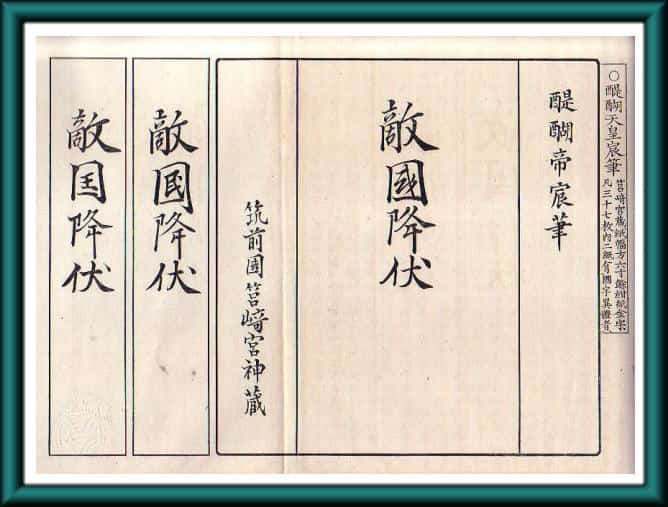 ○醍醐天皇宸筆
筥﨑宮蔵紙幅方六寸餘紺紙金字
凡三十七枚内二紙有國字異體者
醍醐帝宸筆
敵國降伏
筑前國筥﨑宮神藏
敵囻降伏
敵囯降伏